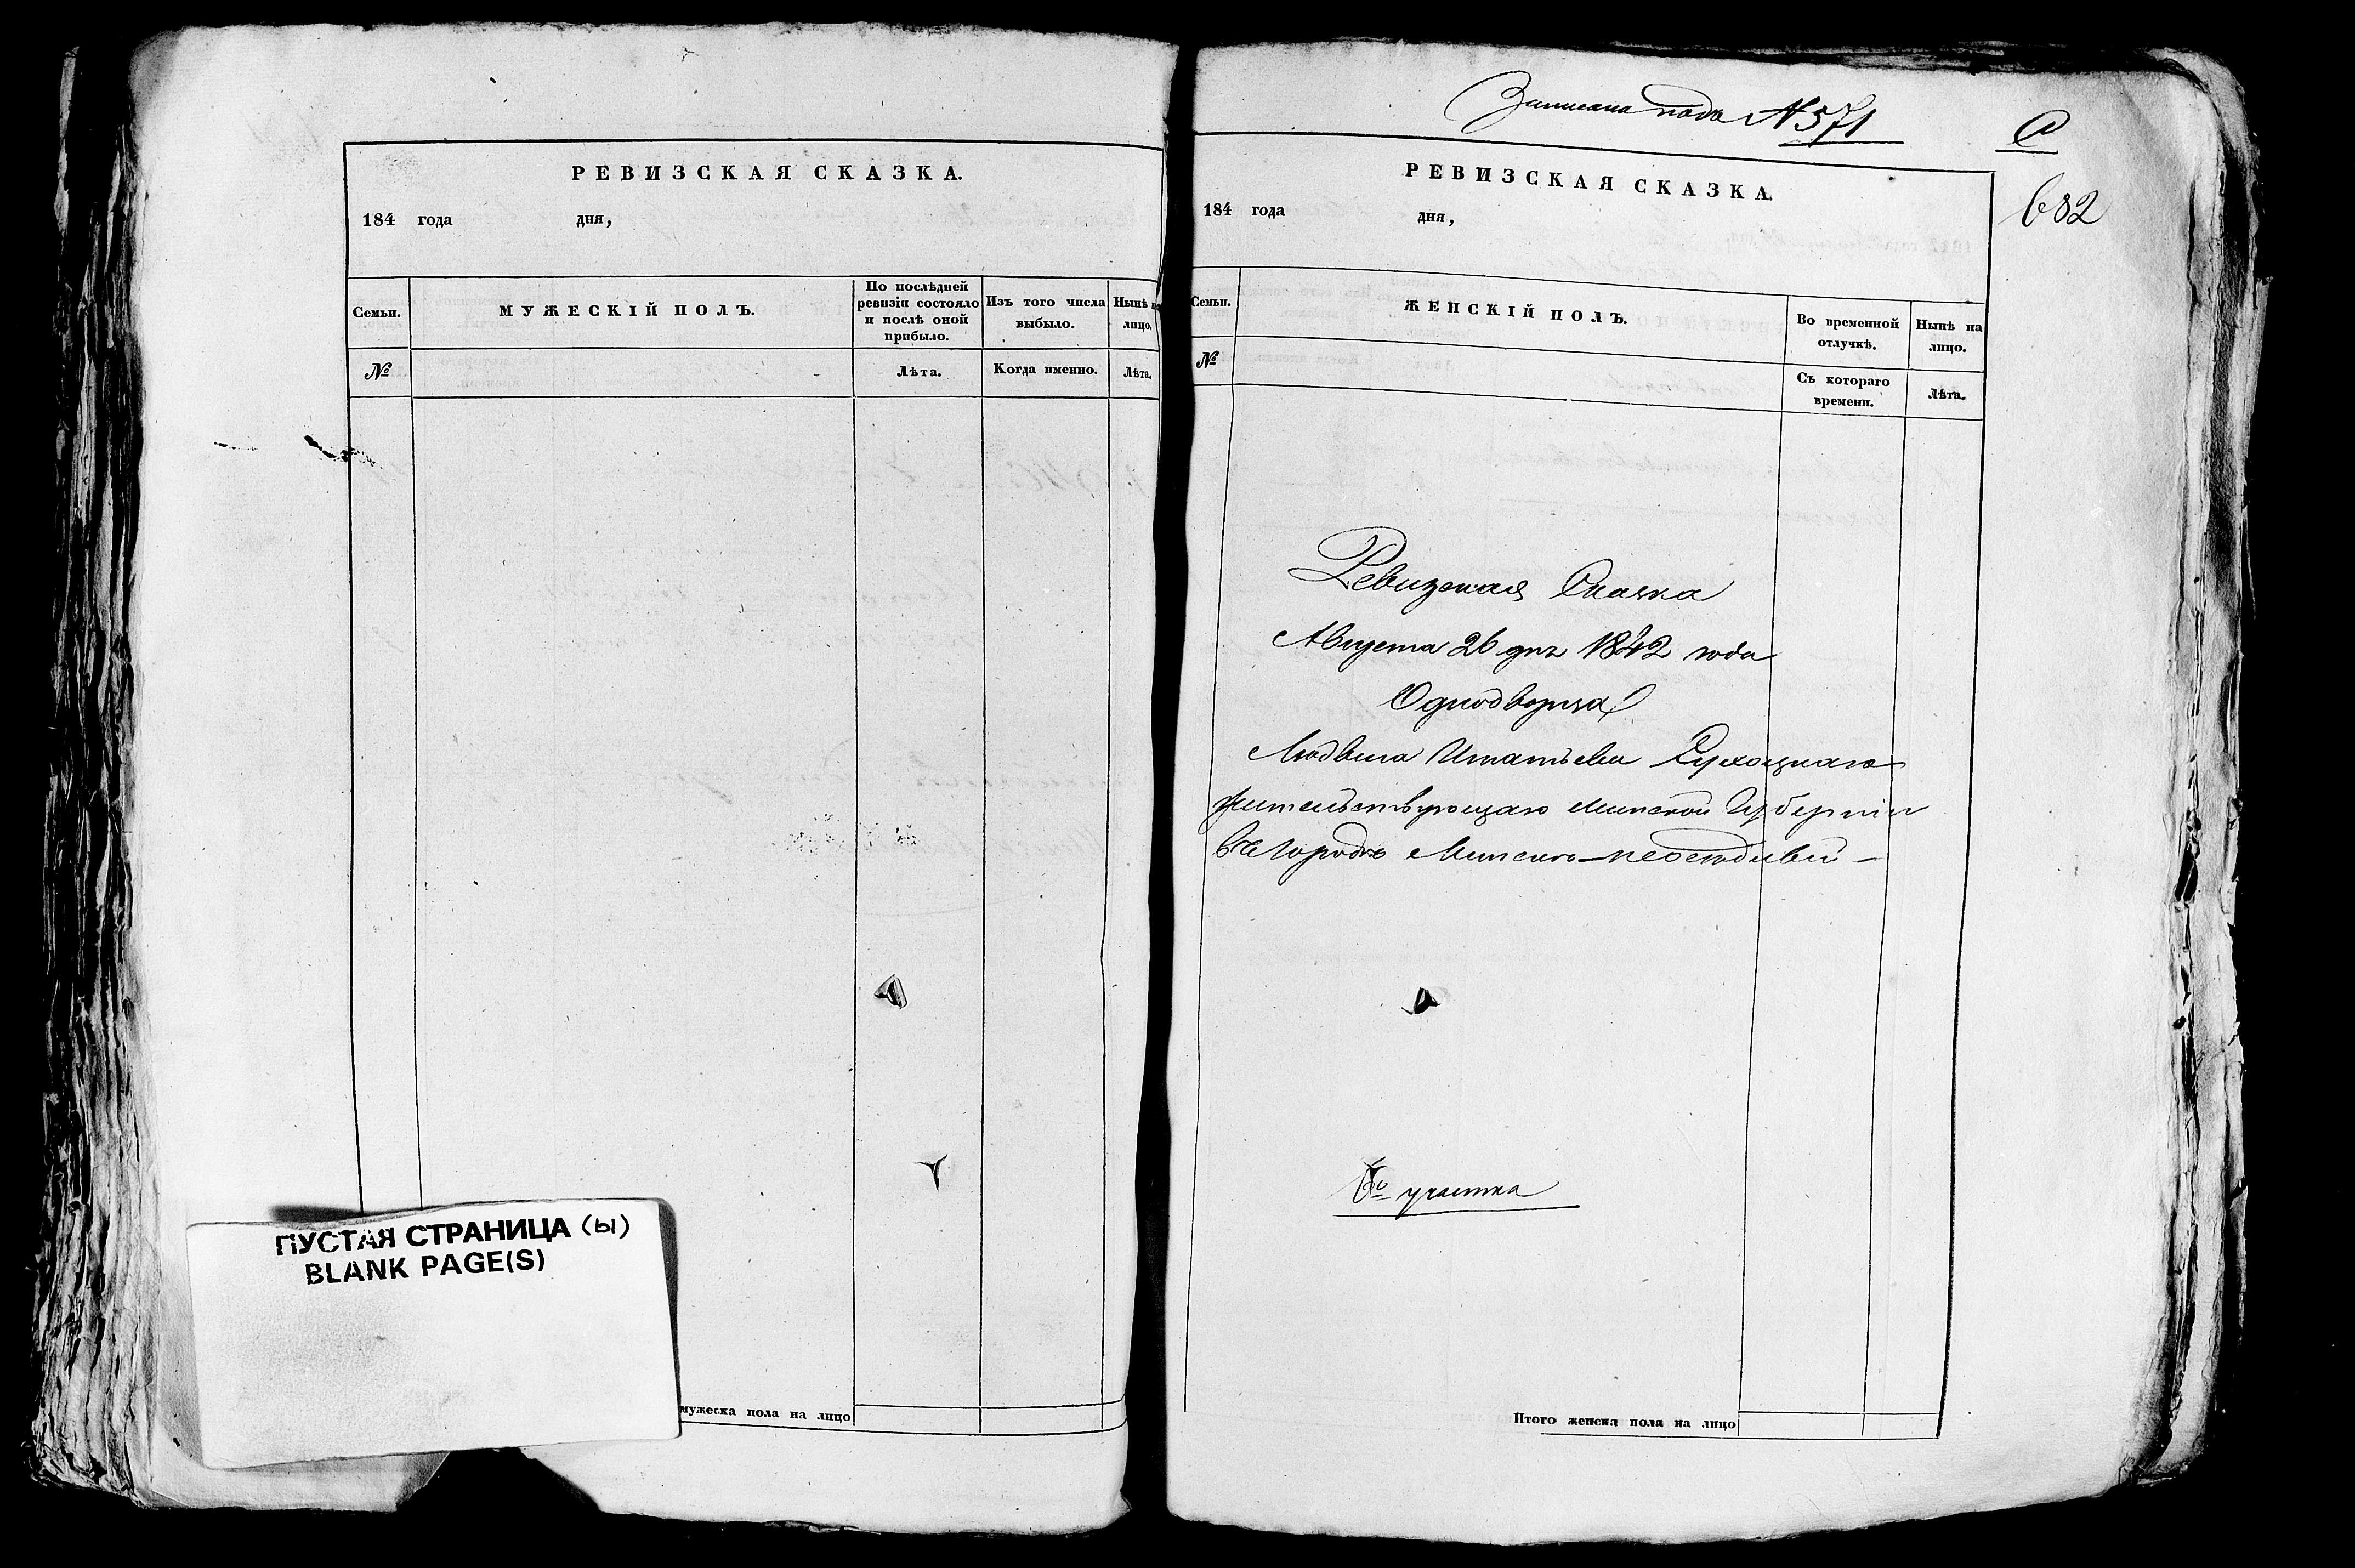 РЕВИЗСКАЯ СКАЗКА.
184 года дня,
Семьи. МУЖЕСКІЙ ПОЛЪ. По послѣдней ревизіи состояло и послѣ оной прибыло. Изъ того числа выбыло. Нынѣ на лицо.
№ Лѣта. Когда именно. Лѣта.
ПУСТАЯ СТРАНИЦА (ы)
BLANK PAGE(S)
мужеска пола на лицо
Записана подъ №571
682
РЕВИЗСКАЯ СКАЗКА.
184 года дня,
Семьи. ЖЕНСКІЙ ПОЛЪ. Во временной отлучкѣ. Нынѣ на лицо.
№ Съ котораго времени. Лѣта.
Ревизская Сказка
Августа 26 дня 1842 года
Однодворца
Людвига Игнатьева Сухоцкаго
жительствующаго Минской Губерніи
въ Городѣ Минскѣ
участка
Итого женска пола на лицо